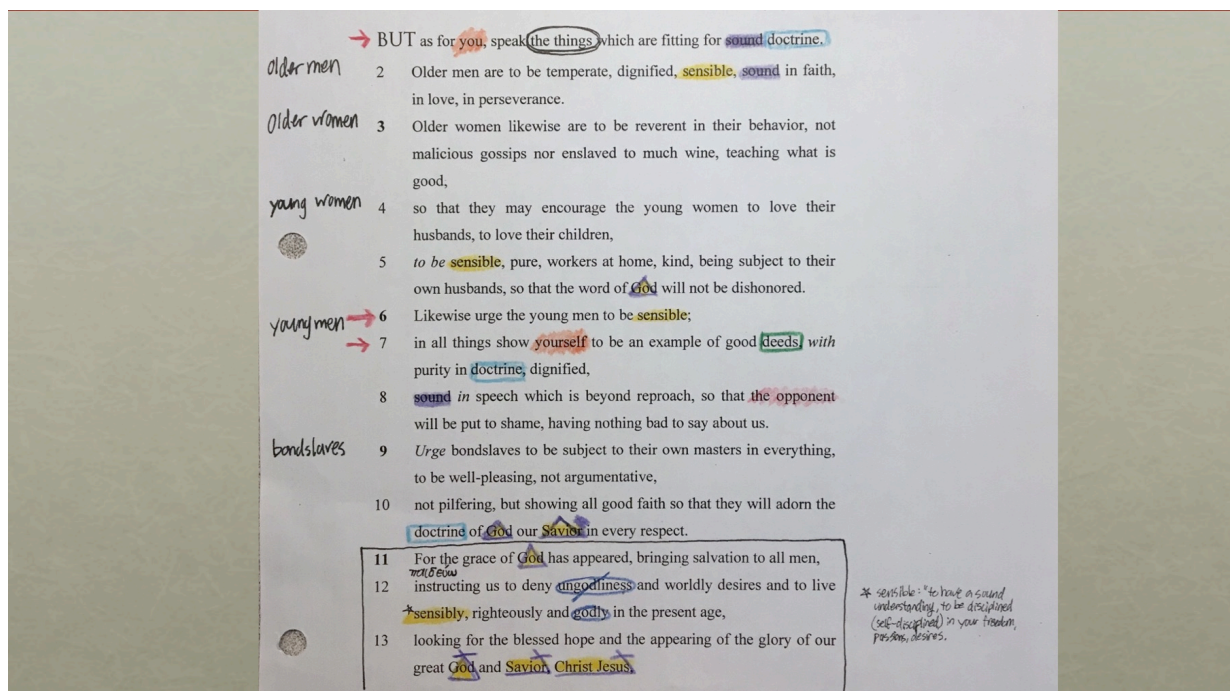 BUT as for you, speak the things which are fitting for sound doctrine.
older men
2 Older men are to be temperate, dignified, sensible, sound in faith,
in love, in perseverance.
Older women
3 Older women likewise are to be reverent in their behavior, not
malicious gossips nor enslaved to much wine, teaching what is
good,
young women
4 so that they may encourage the young women to love their
husbands, to love their children,
5 to be sensible, pure, workers at home, kind, being subject to their
own husbands, so that the word of God will not be dishonored.
young men
6 Likewise urge the young men to be sensible;
7 in all things show yourself to be an example of good deeds, with
purity in doctrine, dignified,
8 sound in speech which is beyond reproach, so that the opponent
will be put to shame, having nothing bad to say about us.
bondslaves
9 Urge bondslaves to be subject to their own masters in everything,
to be well-pleasing, not argumentative,
10 not pilfering, but showing all good faith so that they will adorn the
doctrine of God our Savior in every respect.
11 For the grace of God has appeared, bringing salvation to all men,
παιδεύω
12 instructing us to deny ungodliness and worldly desires and to live
*sensibly, righteously and godly in the present age,
13 looking for the blessed hope and the appearing of the glory of our
great God and Savior, Christ Jesus,
* sensible: "to have a sound
understanding, to be disciplined
(self-disciplined) in your freedom,
passions, desires.